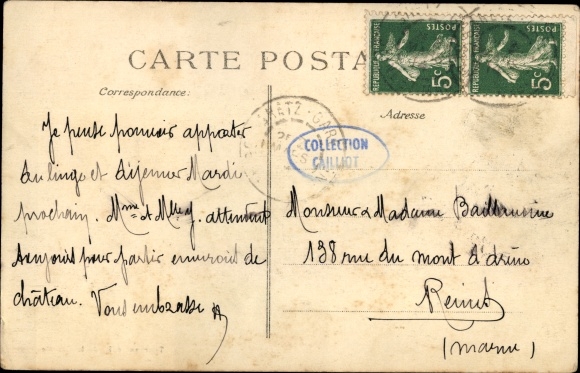 CARTE POSTA
POSTES
REPUBLIQUE FRANÇAISE
5c
POSTES
REPUBLIQUE FRANÇAISE
5c
Correspondance:
Adresse
COLLECTION
CAILLIOT
Je pense pouvoir apporter
du linge et déjeuner Mardi
prochain. Mme et attendent
toujours pour partir
château. Vous embrasse
Monsieur & Madame
138 rue du mont d'arène
Reims
(Marne)